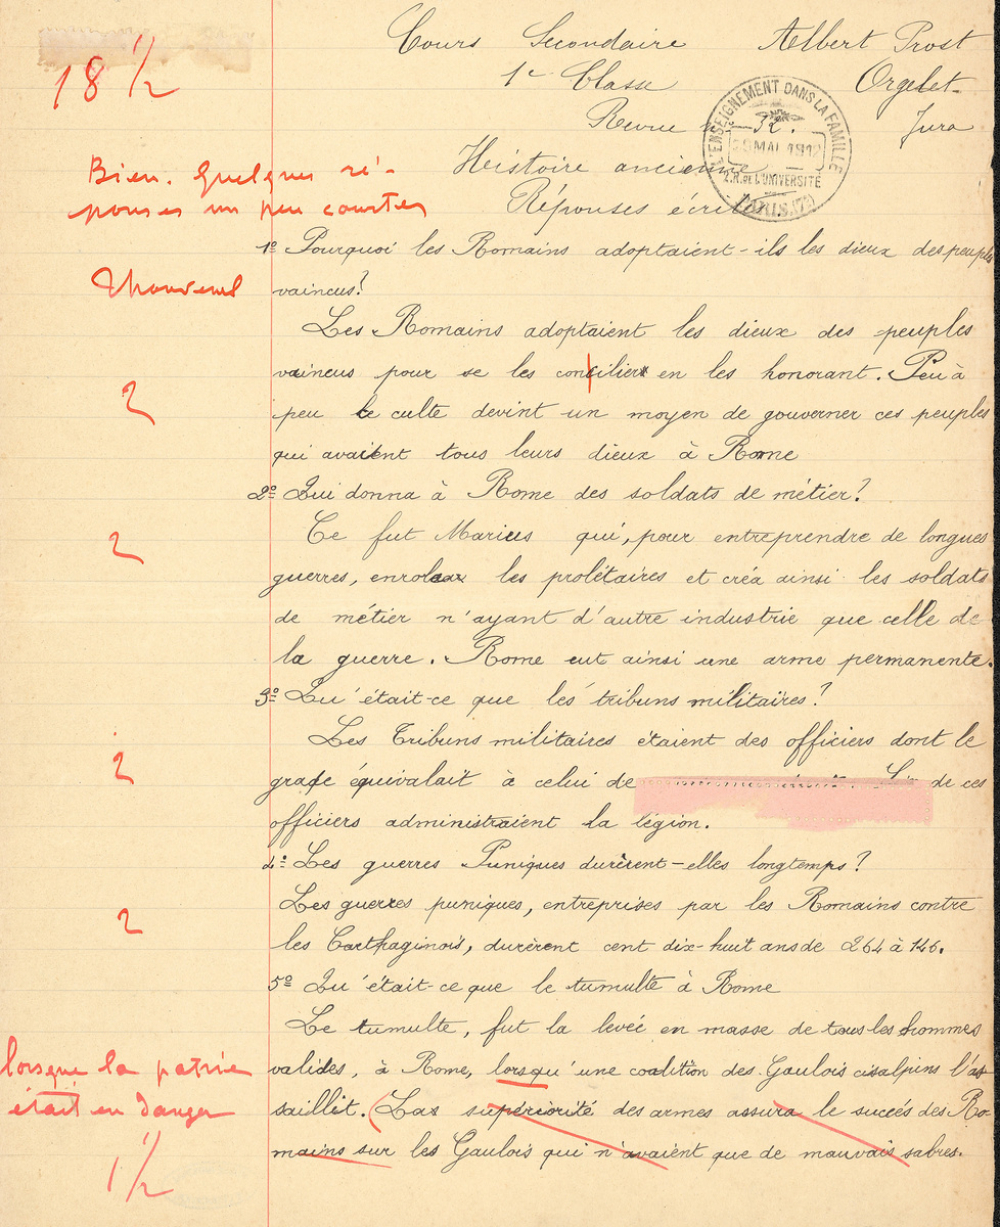 18 1/2
Cours Secondaire Albert Prost
1e Classe Orgelet-
Revue n° 32. Jura
L'ENSEIGNEMENT DANS LA FAMILLE
MAI 1912
2.R.DE L'UNIVERSITÉ
PARIS.(7e)
Histoire ancienne
Réponses écrites
Bien. Quelques ré-
ponses un peu courtes
1° Pourquoi les Romains adoptaient-ils les dieux des peuples
vaincus?
Les Romains adoptaient les dieux des peuples
vaincus pour se les concilier en les honorant. Peu à
2
peu le culte devint un moyen de gouverner ces peuples
qui avaient tous leurs dieux à Rome
2° Qui donna à Rome des soldats de métier?
2
Ce fut Marius qui, pour entreprendre de longues
guerres, enrola les prolétaires et créa ainsi les soldats
de métier n'ayant d'autre industrie que celle de
la guerre. Rome eut ainsi une arme permanente.
3° Qu'était-ce que les tribuns militaires?
Les Tribuns militaires étaient des officiers dont le
2
grade équivalait à celui de de ces
officiers administraient la légion.
4° Les guerres Puniques durèrent-elles longtemps?
2
Les guerres puniques, entreprises par les Romains contre
les Carthaginois, durèrent cent dix-huit ans de 264 à 146.
5° Qu'était-ce que le tumulte à Rome
Le tumulte, fut la levée en masse de tous les hommes
lorsque la patrie
valides, à Rome, lorsqu'une coalition des Gaulois cisalpins l'as
était en danger
saillit. (Las supériorité des armes assura le succés des Ro-
1/2
mains sur les Gaulois qui n'avaient que de mauvais sabres.